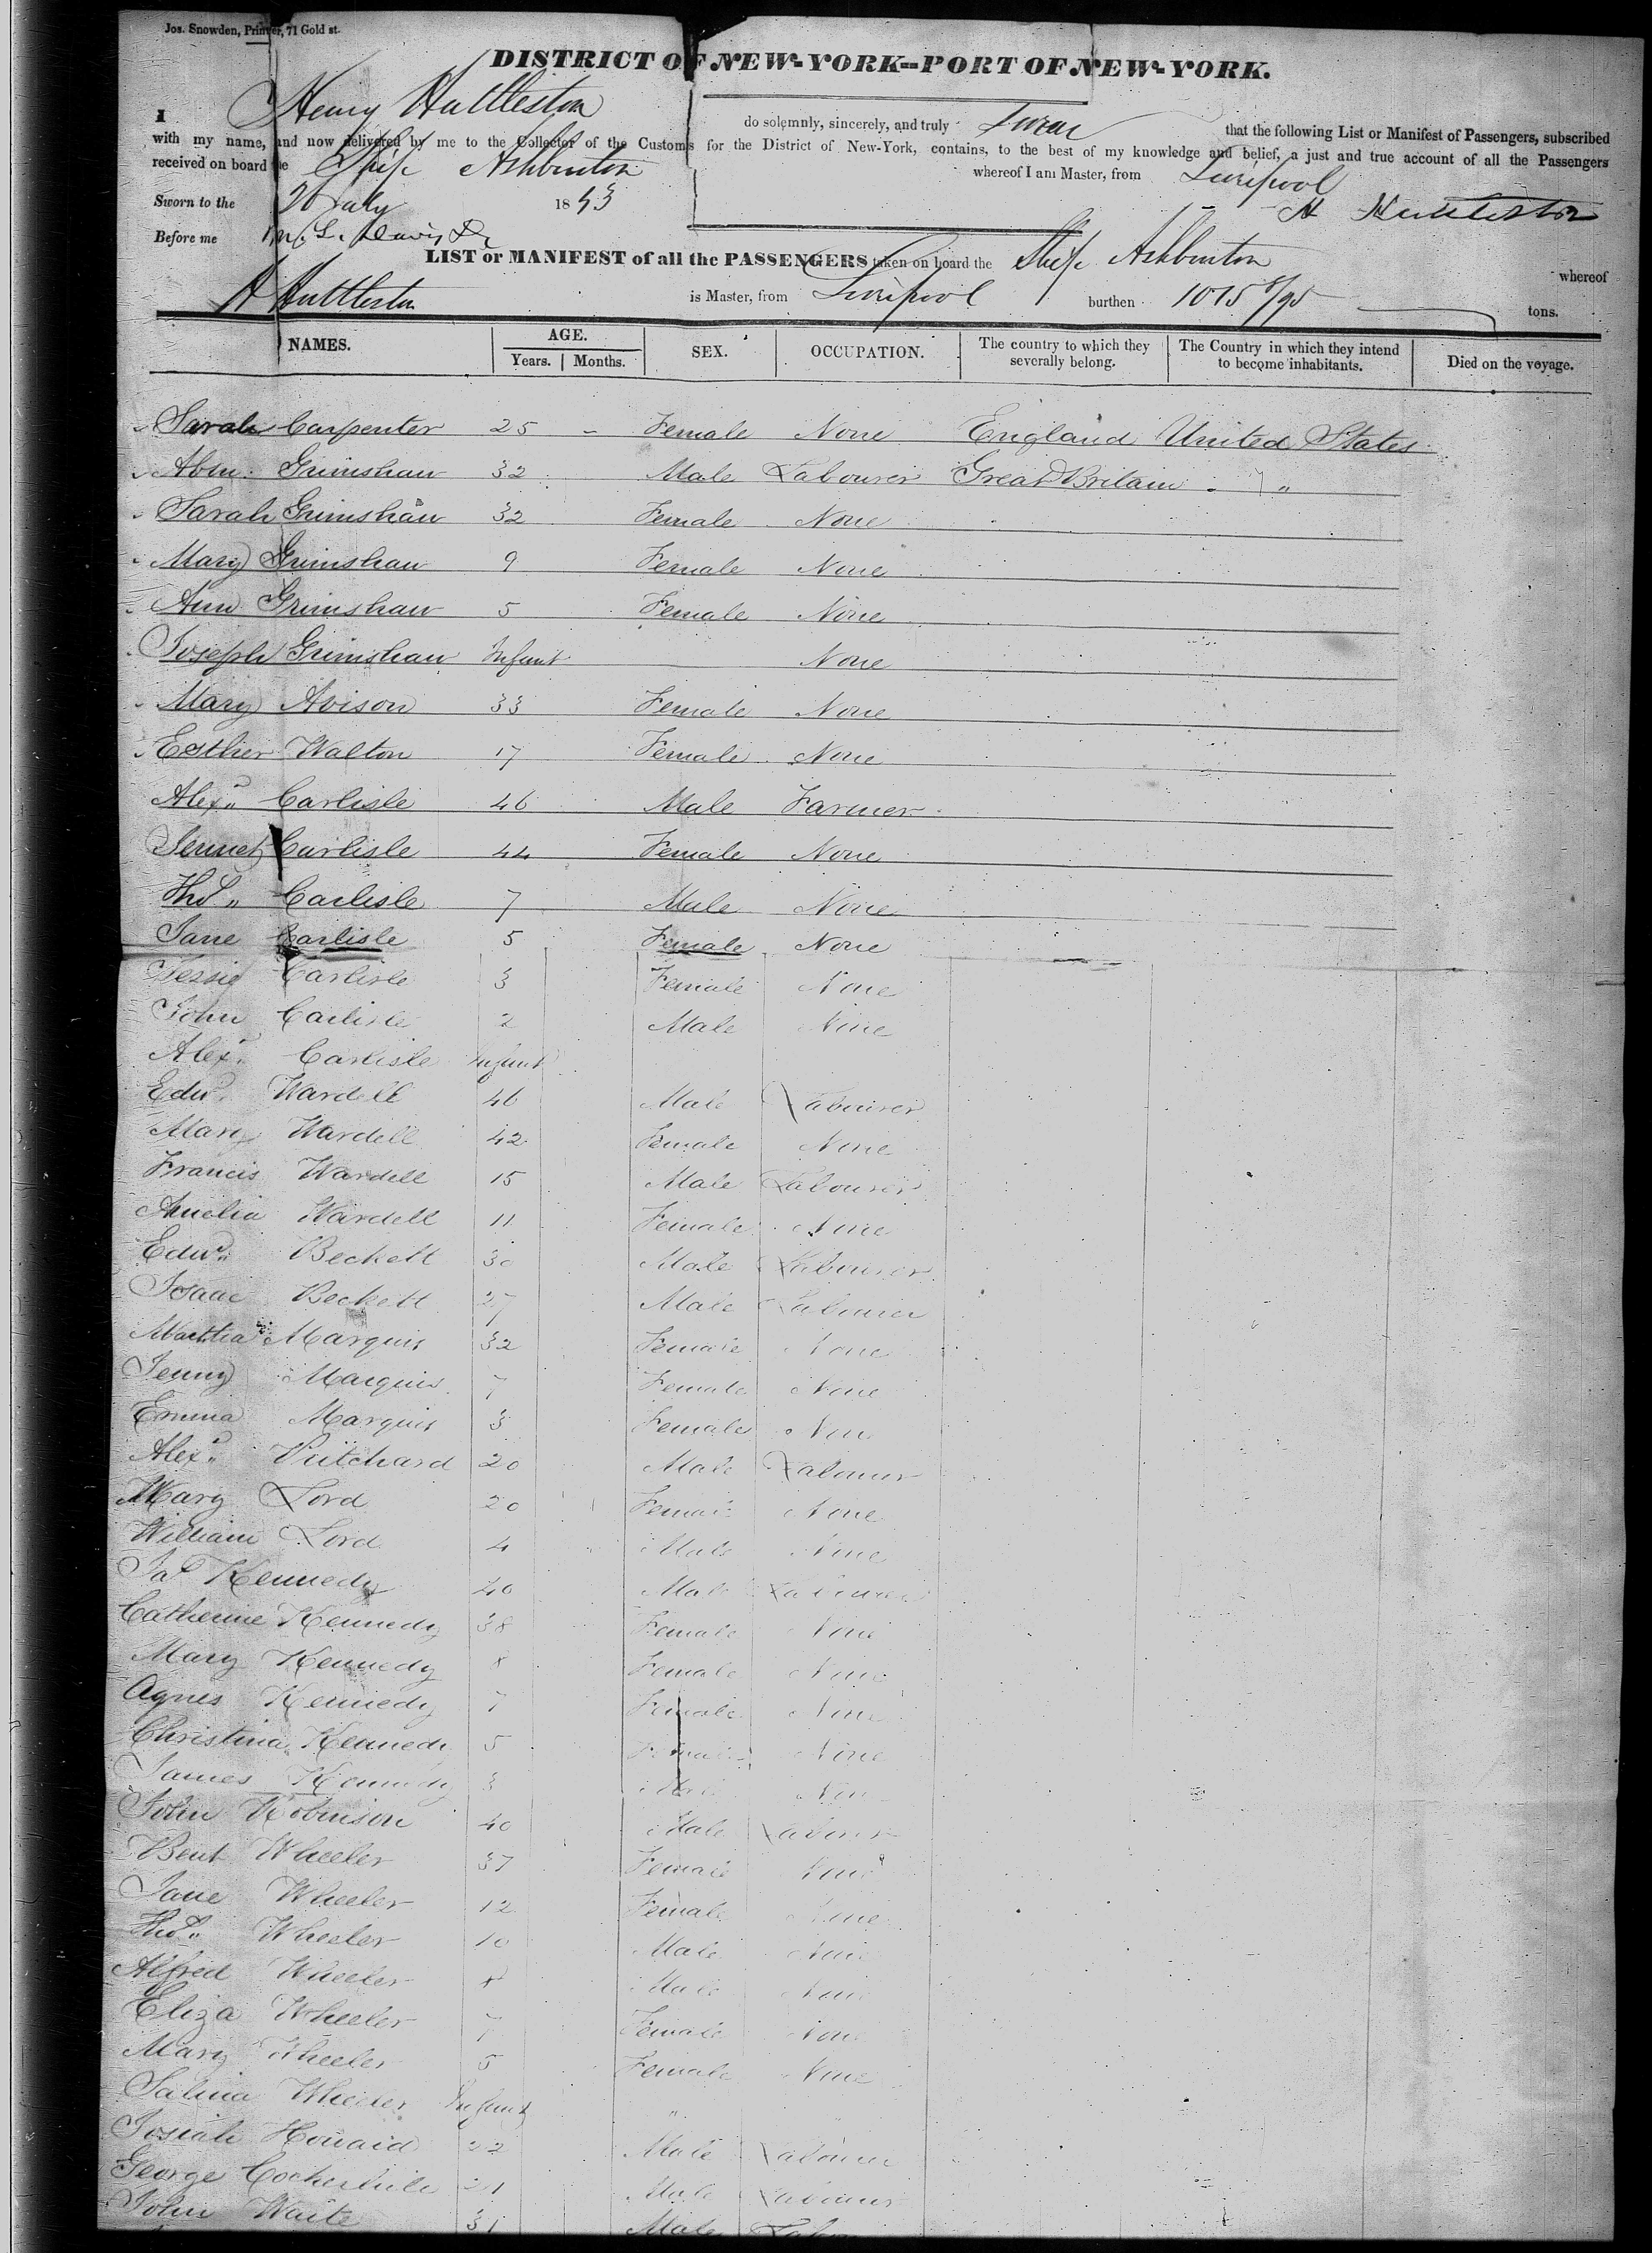 Jos. Snowden, Printer, 71 Gold st.
DISTRICT OF NEW-YORK--PORT OF NEW-YORK.
I Henry Huttleston do solemnly, sincerely, and truly Swear that the following List or Manifest of Passengers, subscribed
with my name, and now delivered by me to the Collector of the Customs for the District of New-York, contains, to the best of my knowledge and belief, a just and true account of all the Passengers
received on board the Ship Ashburton whereof I am Master, from Liverpool
Sworn to the 26 July 1843 H Huttleston
Before me
LIST or MANIFEST of all the PASSENGERS taken on board the Ship Ashburton whereof
H Huttleston is Master, from Liverpool burthen 1015 /95 tons.
NAMES. AGE. SEX. OCCUPATION. The country to which they severally belong. The Country in which they intend to become inhabitants. Died on the voyage.
Years. Months.
Sarah Carpenter 25 - Female None England United States
Abm. Grimshaw 32 Male Labourer Great Britain "
Sarah Grimshaw 32 Female None
Mary Grimshaw 9 Female None
Ann Grimshaw 5 Female None
Joseph Grimshaw Infant None
Mary Avison 33 Female None
Esther Walton 17 Female None
Alexr Carlisle 46 Male Farmer
Jennet Carlisle 44 Female None
Thos Carlisle 7 Male None
Jane Carlisle 5 Female None
Jessie Carlisle 3 Female None
John Carlisle 2 Male None
Alexr Carlisle Infant
Edwd Wardell 46 Male Labourer
Mary Wardell 42 Female None
Francis Wardell 15 Male Labourer
Amelia Wardell 11 Female None
Edwd Beckett 30 Male Labourer
Isaac Beckett 27 Male Labourer
Martha Marquis 32 Female None
Jenny Marquis 7 Female None
Emma Marquis 3 Female None
Alexr Pritchard 20 Male Labourer
Mary Lord 20 Female None
William Lord 4 Male None
Jas Kennedy 40 Male Labourer
Catherine Kennedy 38 Female None
Mary Kennedy 8 Female None
Agnes Kennedy 7 Female None
Christina Kennedy 5 Female None
James Kennedy 3 Male None
John Robinson 40 Male Labourer
Bent Wheeler 37 Female None
Jane Wheeler 12 Female None
Thos Wheeler 10 Male None
Alfred Wheeler 8 Male None
Eliza Wheeler 7 Female None
Mary Wheeler 5 Female None
Salina Wheeler Infant "
Josiah Howard 22 Male Labourer
George 21 Male Labourer
John Waite 31 Male Labourer